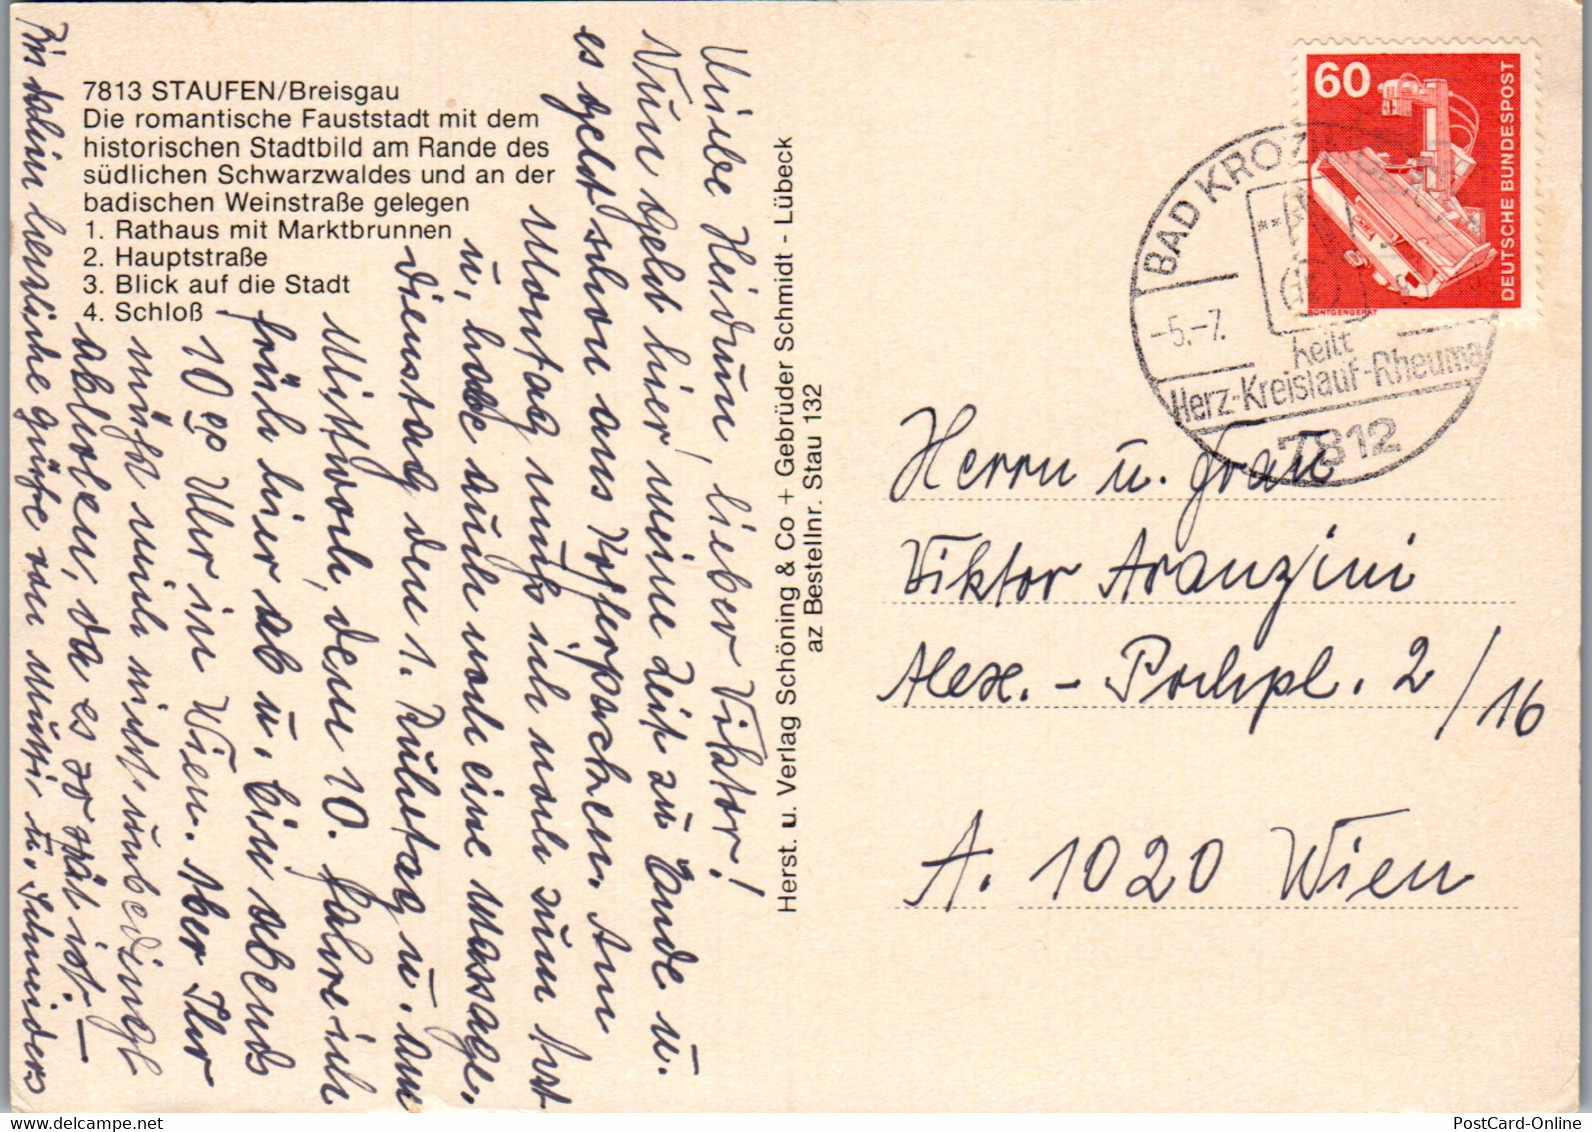 7813 STAUFEN/Breisgau
Die romantische Fauststadt mit dem
historischen Stadtbild am Rande des
südlichen Schwarzwaldes und an der
badischen Weinstraße gelegen
1. Rathaus mit Marktbrunnen
2. Hauptstraße
3. Blick auf die Stadt
4. Schloß
Liebe Heidrun, lieber Viktor!
Nun geht hier meine Zeit zu Ende u.
es geht schon ans Kofferpacken. Am
Montag muß ich noch zum Arzt
u. habe auch noch eine Massage.
Dienstag den 1. Ruhetag u. am
Mittwoch, dem 10. fahre ich
früh hier ab u. bin abends
10 Uhr in Wien. Aber Ihr
müßt mich nicht unbedingt
abholen, da es so spät ist. –
Bis dahin herzliche Grüße von Mutti u. Schneiders
Herst. u. Verlag Schöning & Co + Gebrüder Schmidt - Lübeck
az Bestellnr. Stau 132
60
DEUTSCHE BUNDESPOST
RÖNTGENGERÄT
BAD KROZINGEN
-5.-7.
heilt
Herz-Kreislauf-Rheuma
7812
Herrn u. Frau
Viktor Aranzini
Alex.-Pochpl. 2/16
A. 1020 Wien
PostCard-Online